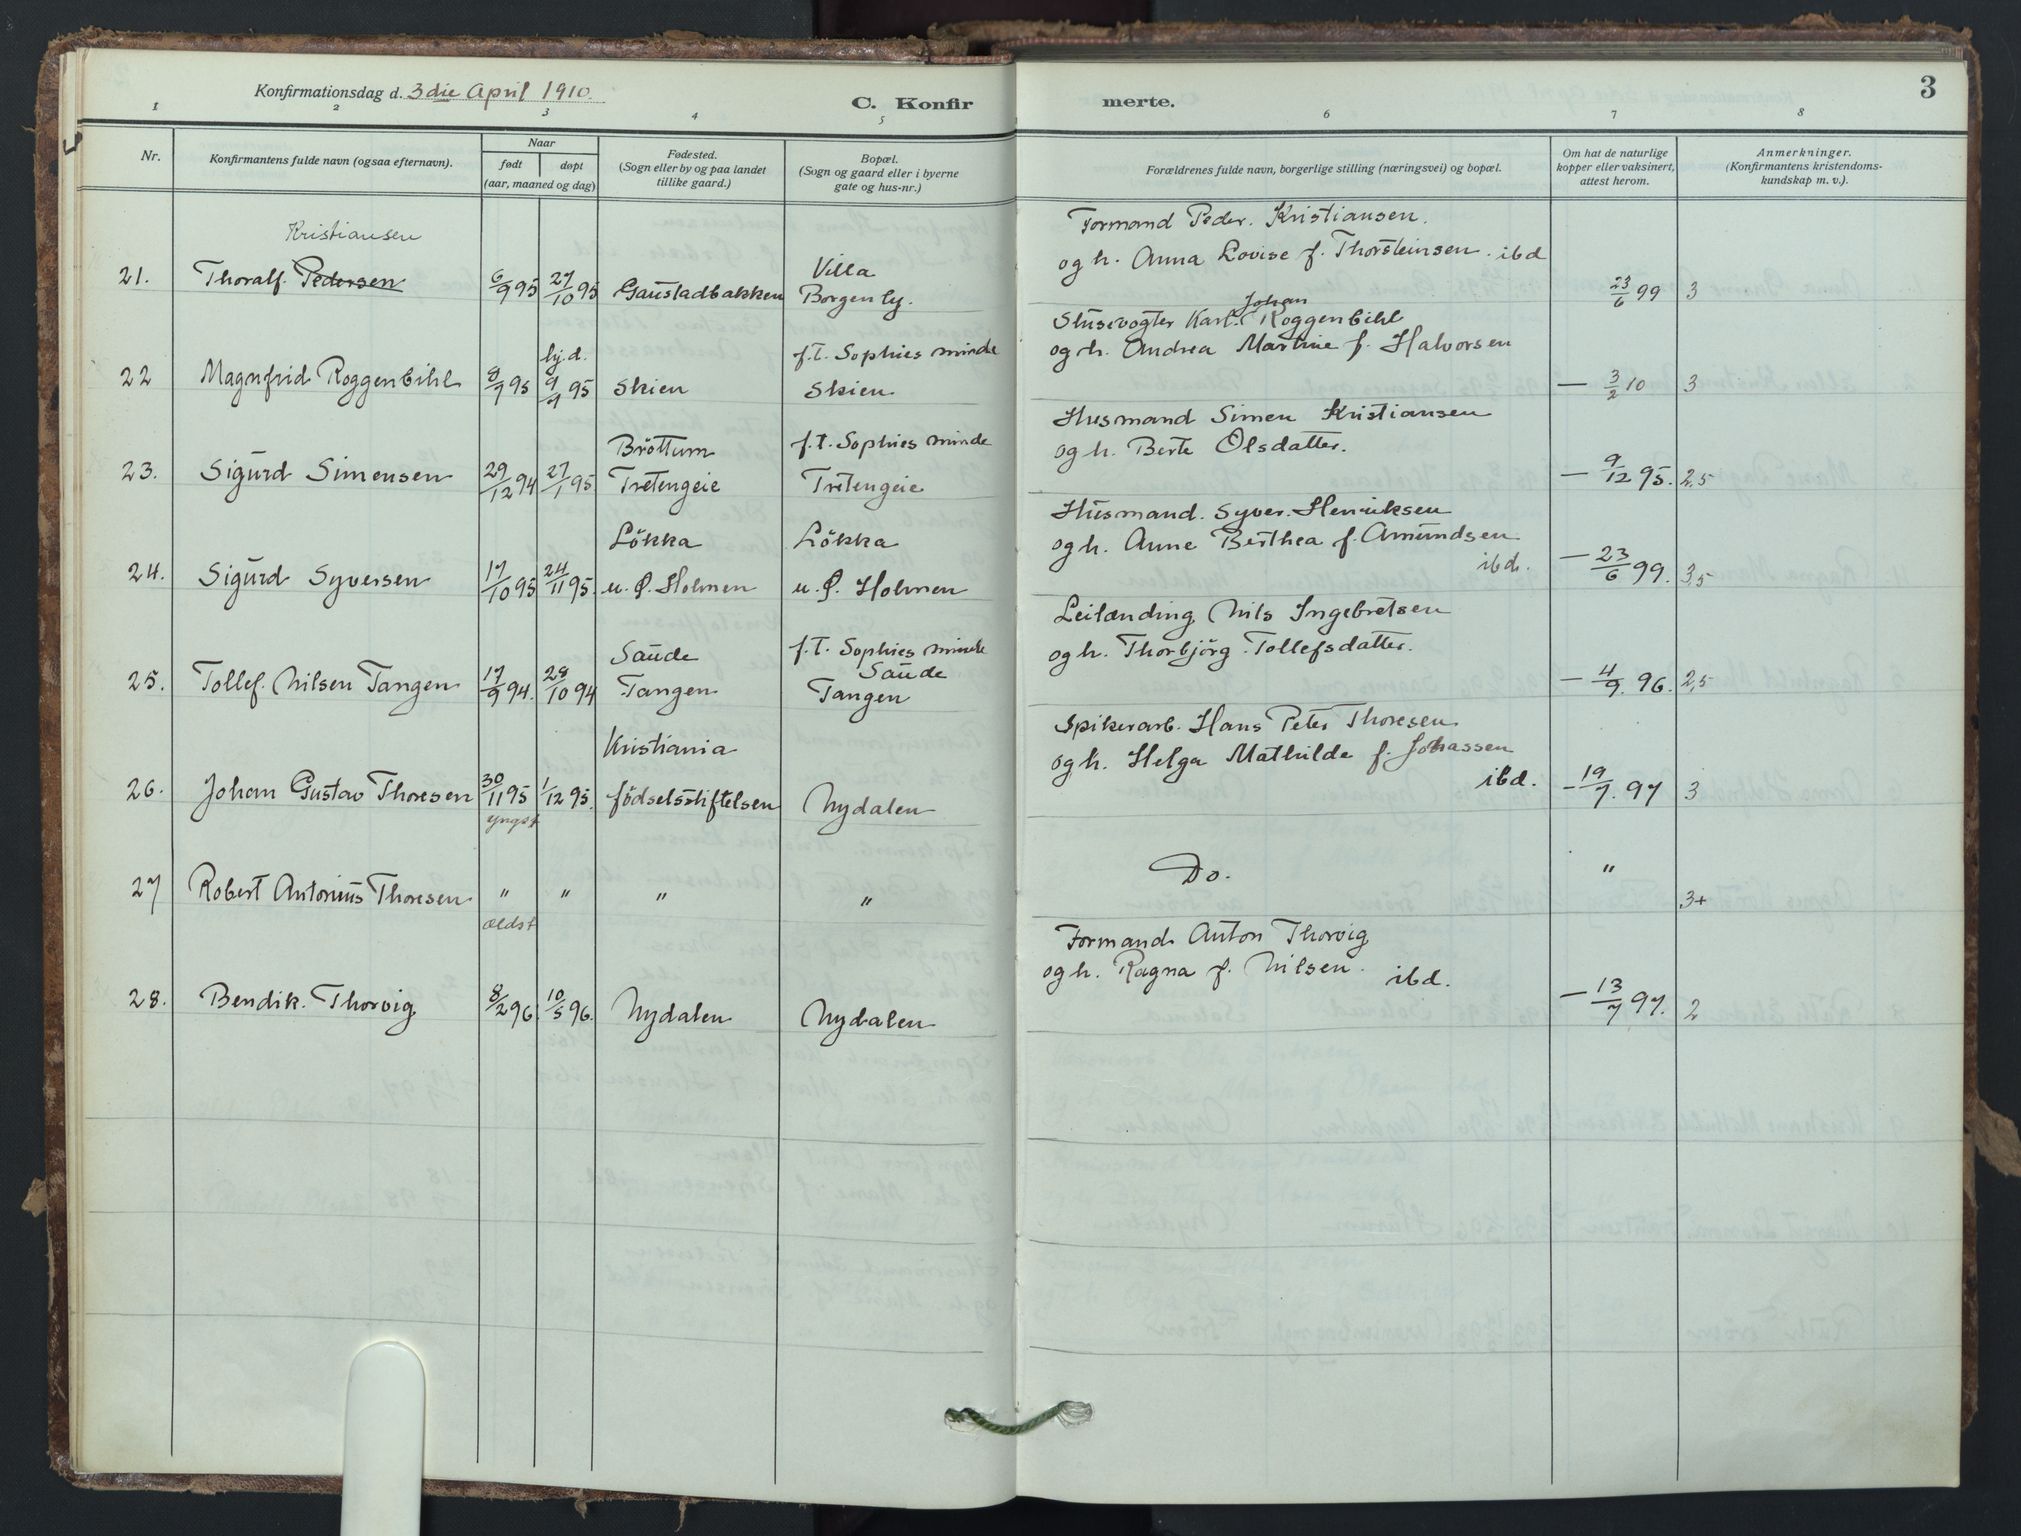 Konfirmationsdag d. 3die April 1910.
C. Konfir
merte.
3
1 2 3 4 5 6 7 8
Nr.
Konfirmantens fulde navn (ogsaa efternavn).
Naar
født
døpt
(aar, maaned og dag)
Fødested.
(Sogn eller by og paa landet
tillike gaard.)
Bopæl.
(Sogn og gaard eller i byerne
gate og hus-nr.)
Forældrenes fulde navn, borgerlige stilling (næringsvei) og bopæl.
Om hat de naturlige
kopper eller vaksinert,
attest herom.
Anmerkninger.
(Konfirmantens kristendoms-
kundskap m. v.).
Kristiansen
21. Thoralf Pedersen 6/9 95 27/10 95 Gaustadbakken
Villa
Borgenly.
Formand Peder Kristiansen.
og h. Anna Lovise f. Thorsteinsen. ibd
23/6 99 3
22 Magnfrid Roggenbihl 8/9 95
hj.d.
9/9 95 Skien
f.t. Sophies minde
Skien
Johan
Slusevogter Karl Roggenbihl
og h. Andrea Martine f. Halvorsen
— 3/2 10 3
23. Sigurd Simensen 29/12 94 27/1 95.
Bröttum
Tretengeie
f.t. Sophies minde
Tretengeie
Husmand Simen Kristiansen
og h. Berte Olsdatter.
— 9/12 95. 2,5
24. Sigurd Syversen 17/10 95 24/11 95.
Lökka
u. Ö. Holmen
Lökka
u. Ö. Holmen
Husmand. Syver. Henriksen
og h. Anne Berthea f. Amundsen
ibd.
— 23/6 99. 3,5
25. Tollef Nilsen Tangen 17/9 94. 28/10 94
Saude
Tangen
f.t. Sophies minde
Saude
Tangen
Leilænding Nils Ingebretsen
og h. Thorbjörg Tollefsdatter.
— 4/9. 96. 2,5
26. Johan Gustav Thoresen 30/11 95 1/12 95.
yngst
Kristiania
födselsstiftelsen
Nydalen
Spikerarb. Hans Peter Thoresen
og h. Helga Mathilde f. Johassen
ibd.
— 19/7. 97 3
27 Robert Antonius Thoresen " " " "
ældst
Do. " 3+
28. Bendik Thorvig 8/2 96. 10/5 96. Nydalen Nydalen
Formand Anton Thorvig
og h. Ragna f. Nilsen. ibd.
— 13/7 97. 2